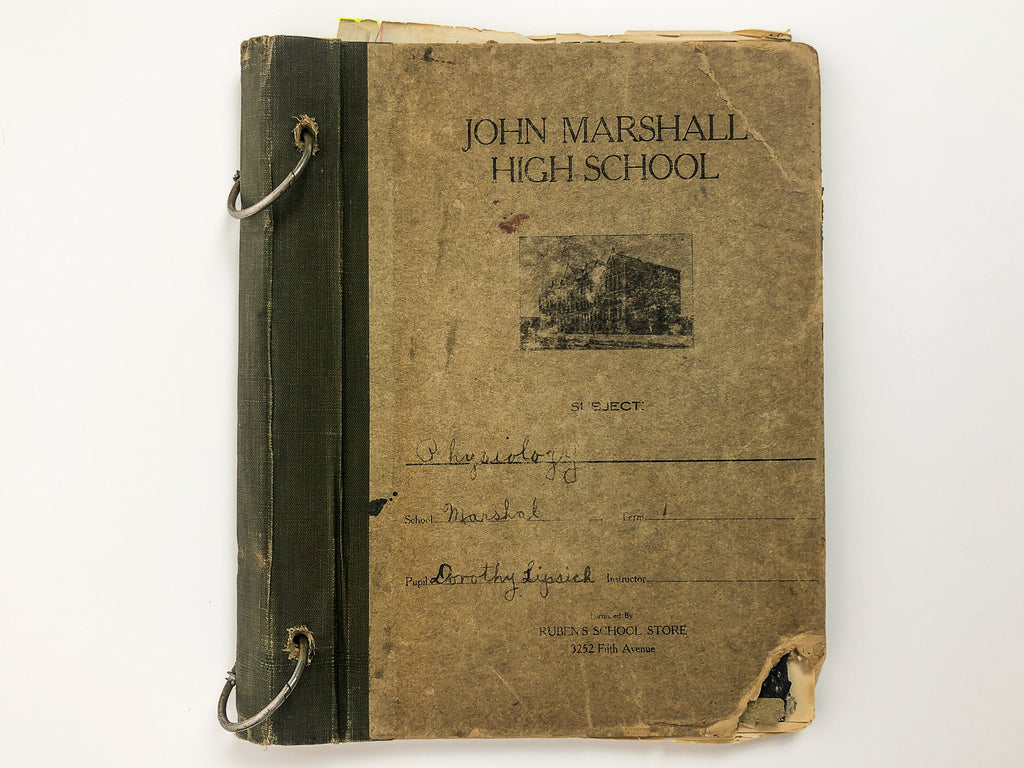 JOHN MARSHALL
HIGH SCHOOL
SUBJECT:
Physiology
School Marshal Term 1
Pupil Dorothy Lipsich Instructor
By
RUBENS SCHOOL STORE
3252 Fifth Avenue